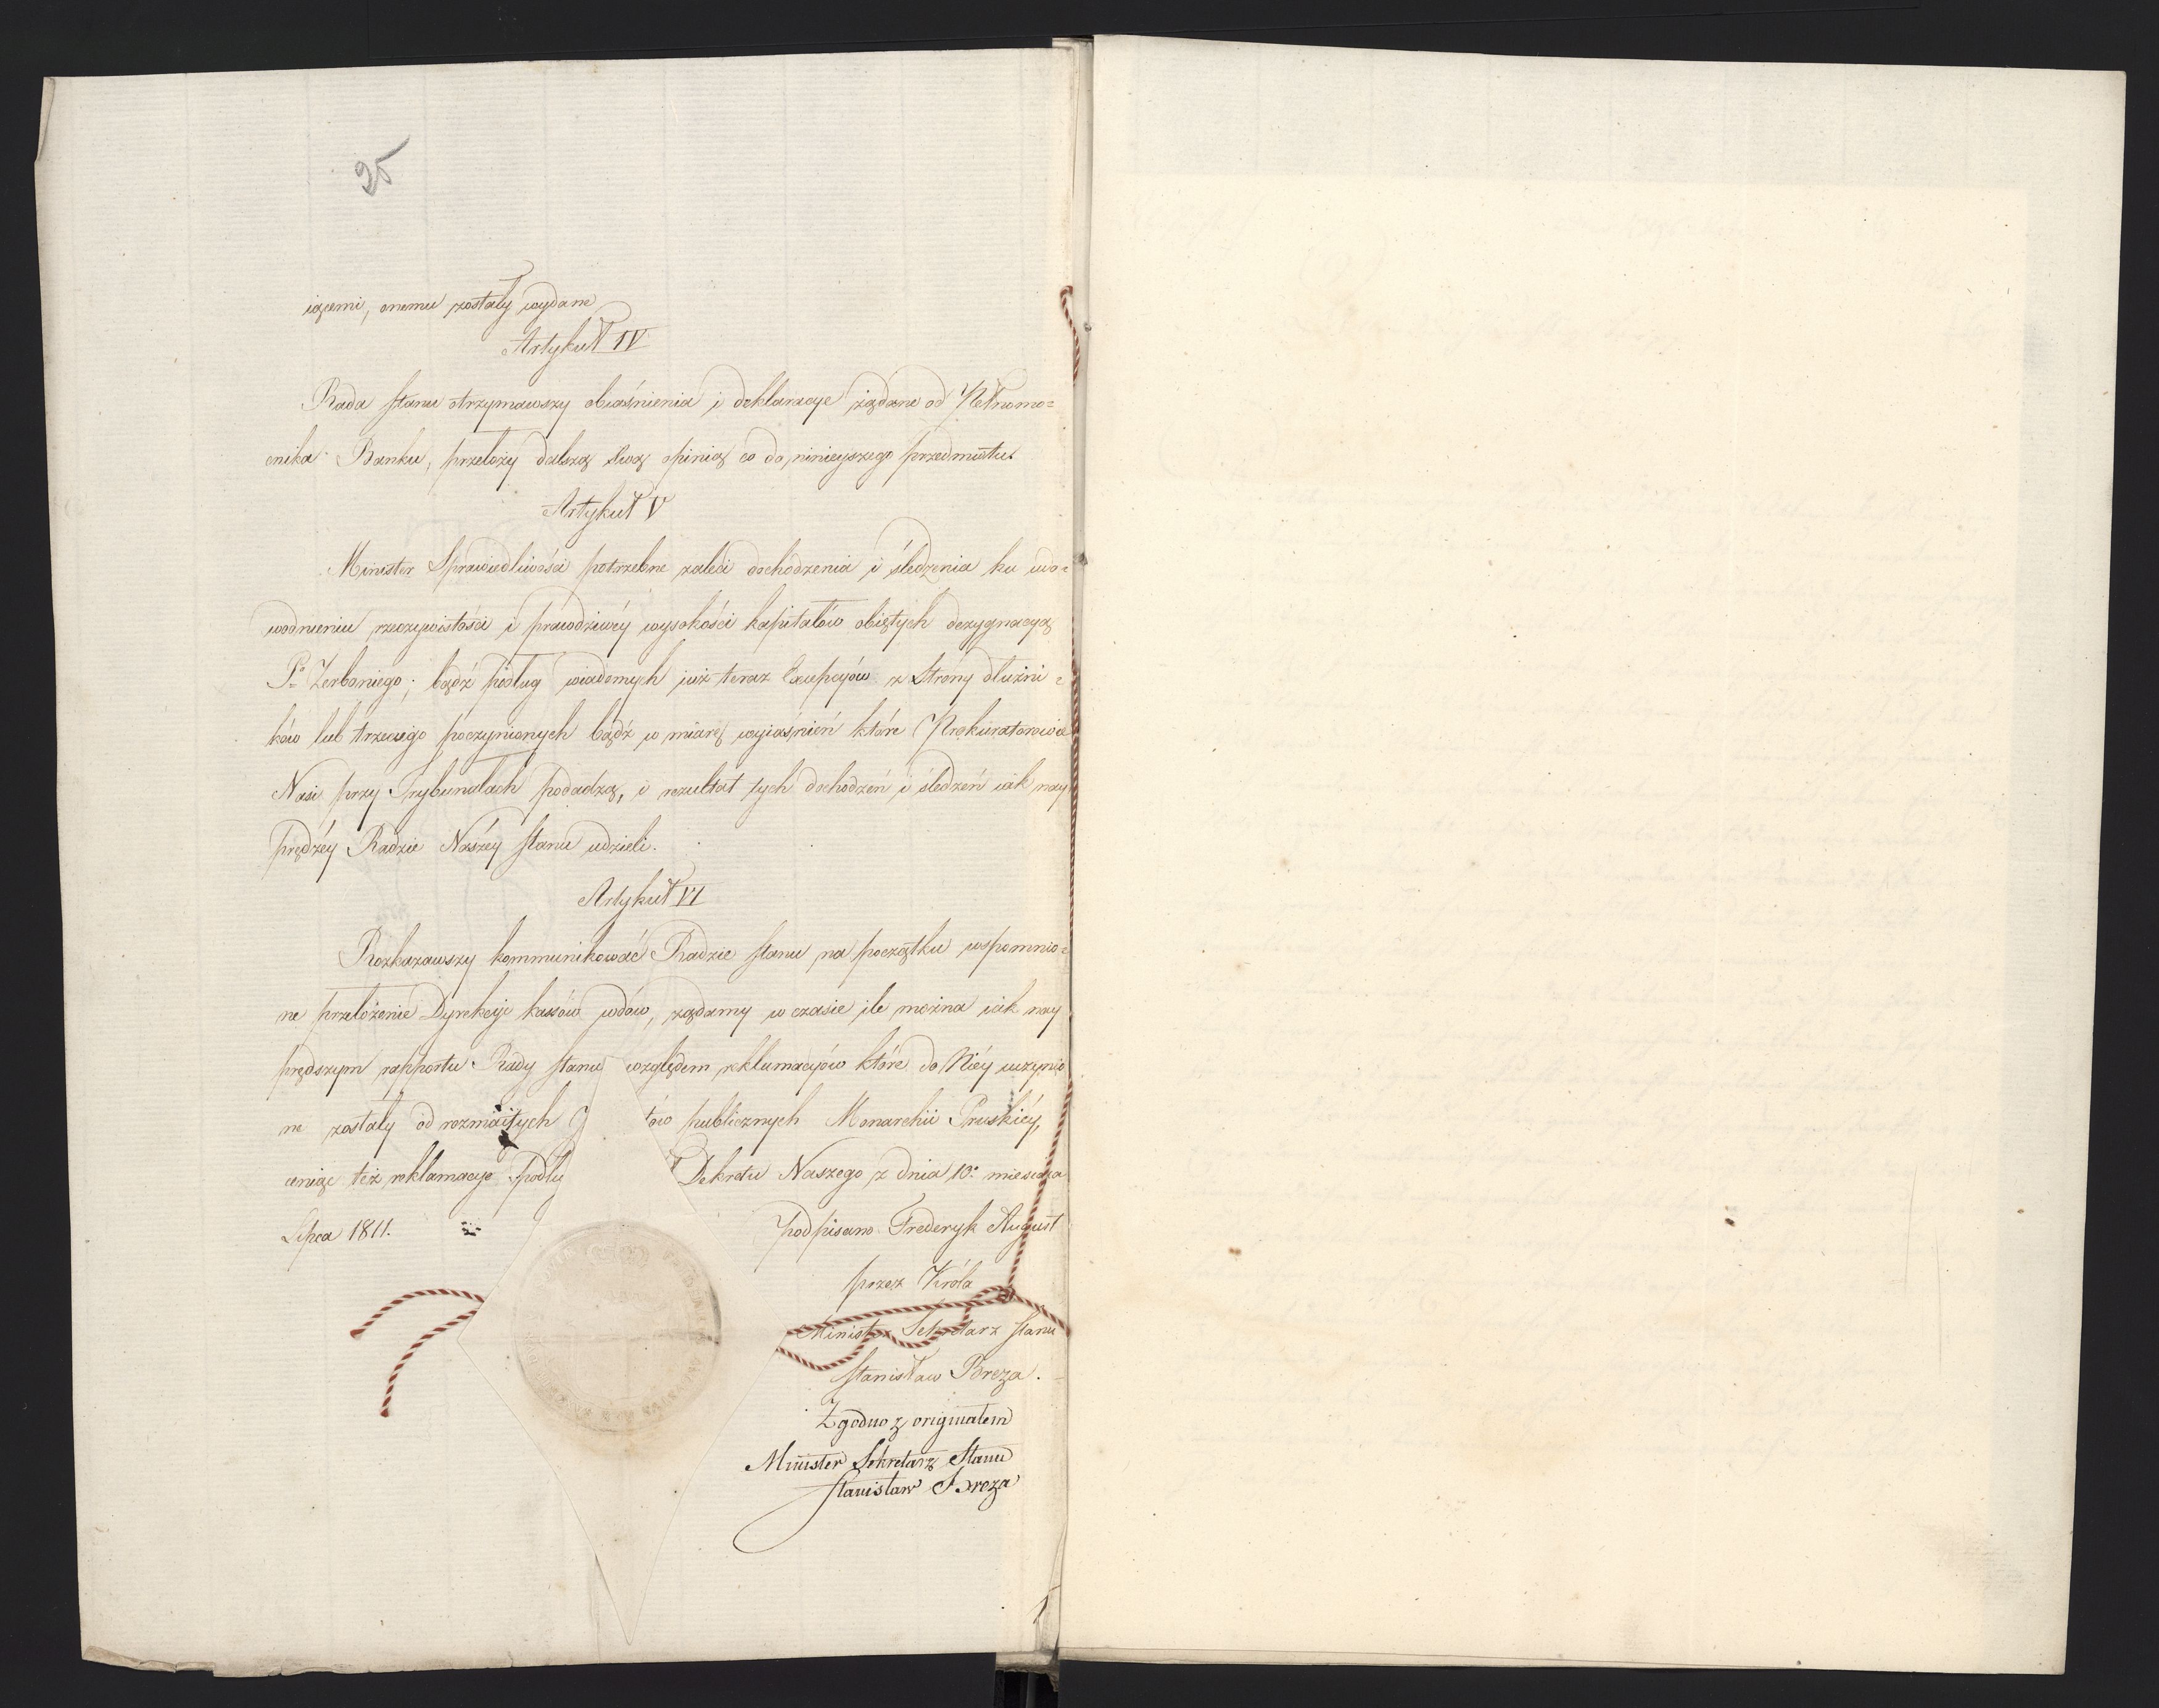 25
iącemi, onemu zostały wydane
Artykuł IV
Rada stanu otrzymawszy obiaśnienia i deklaracye żądane od Pełnomo=
cnika Banku, przełoży dalszą swą opinią co do ninieyszego przedmiotu.
Artykuł V
Minister Sprawiedliwości potrzebne zaleci dochodzenia i śledzenia ku udo=
wodnieniu rzeczywistości i prawdziwéy wysokości kapitałów obiętych dezygnacyą
Pa Zerboniego; bądź podług wiadomych iuż teraz Excepcyów z Strony dłużni=
ków lub trzeciego poczynionych bądź w miarę wyiaśnień które Prokuratorowie
Nasi przy Trybunałach podadzą, i rezultat tych dochodzeń i śledzeń iak nay
prędzéy Radzie Naszéy stanu udzieli.
Artykuł VI
Rozkazawszy kommunikować Radzie stanu na początku wspomnio=
ne przełożenie Dyrekcyi kassów wdów, żądamy w czasie ile można iak nay
prędszym rapportu Rady stanu względem reklamacyów które do Niéy uczynio
ne zostały od rozmaitych tów publicznych Monarchii Pruskiéy,
ceniąc też reklamacye podłu Dekretu Naszego z dnia 10o miesiąca
Lipca 1811. podpisano Frederyk August
przez Króla
Minister Sekretarz stanu
stanisław Breza.
Zgodno z originałem
Minister Sekretarz Stanu
Stanisław Breza